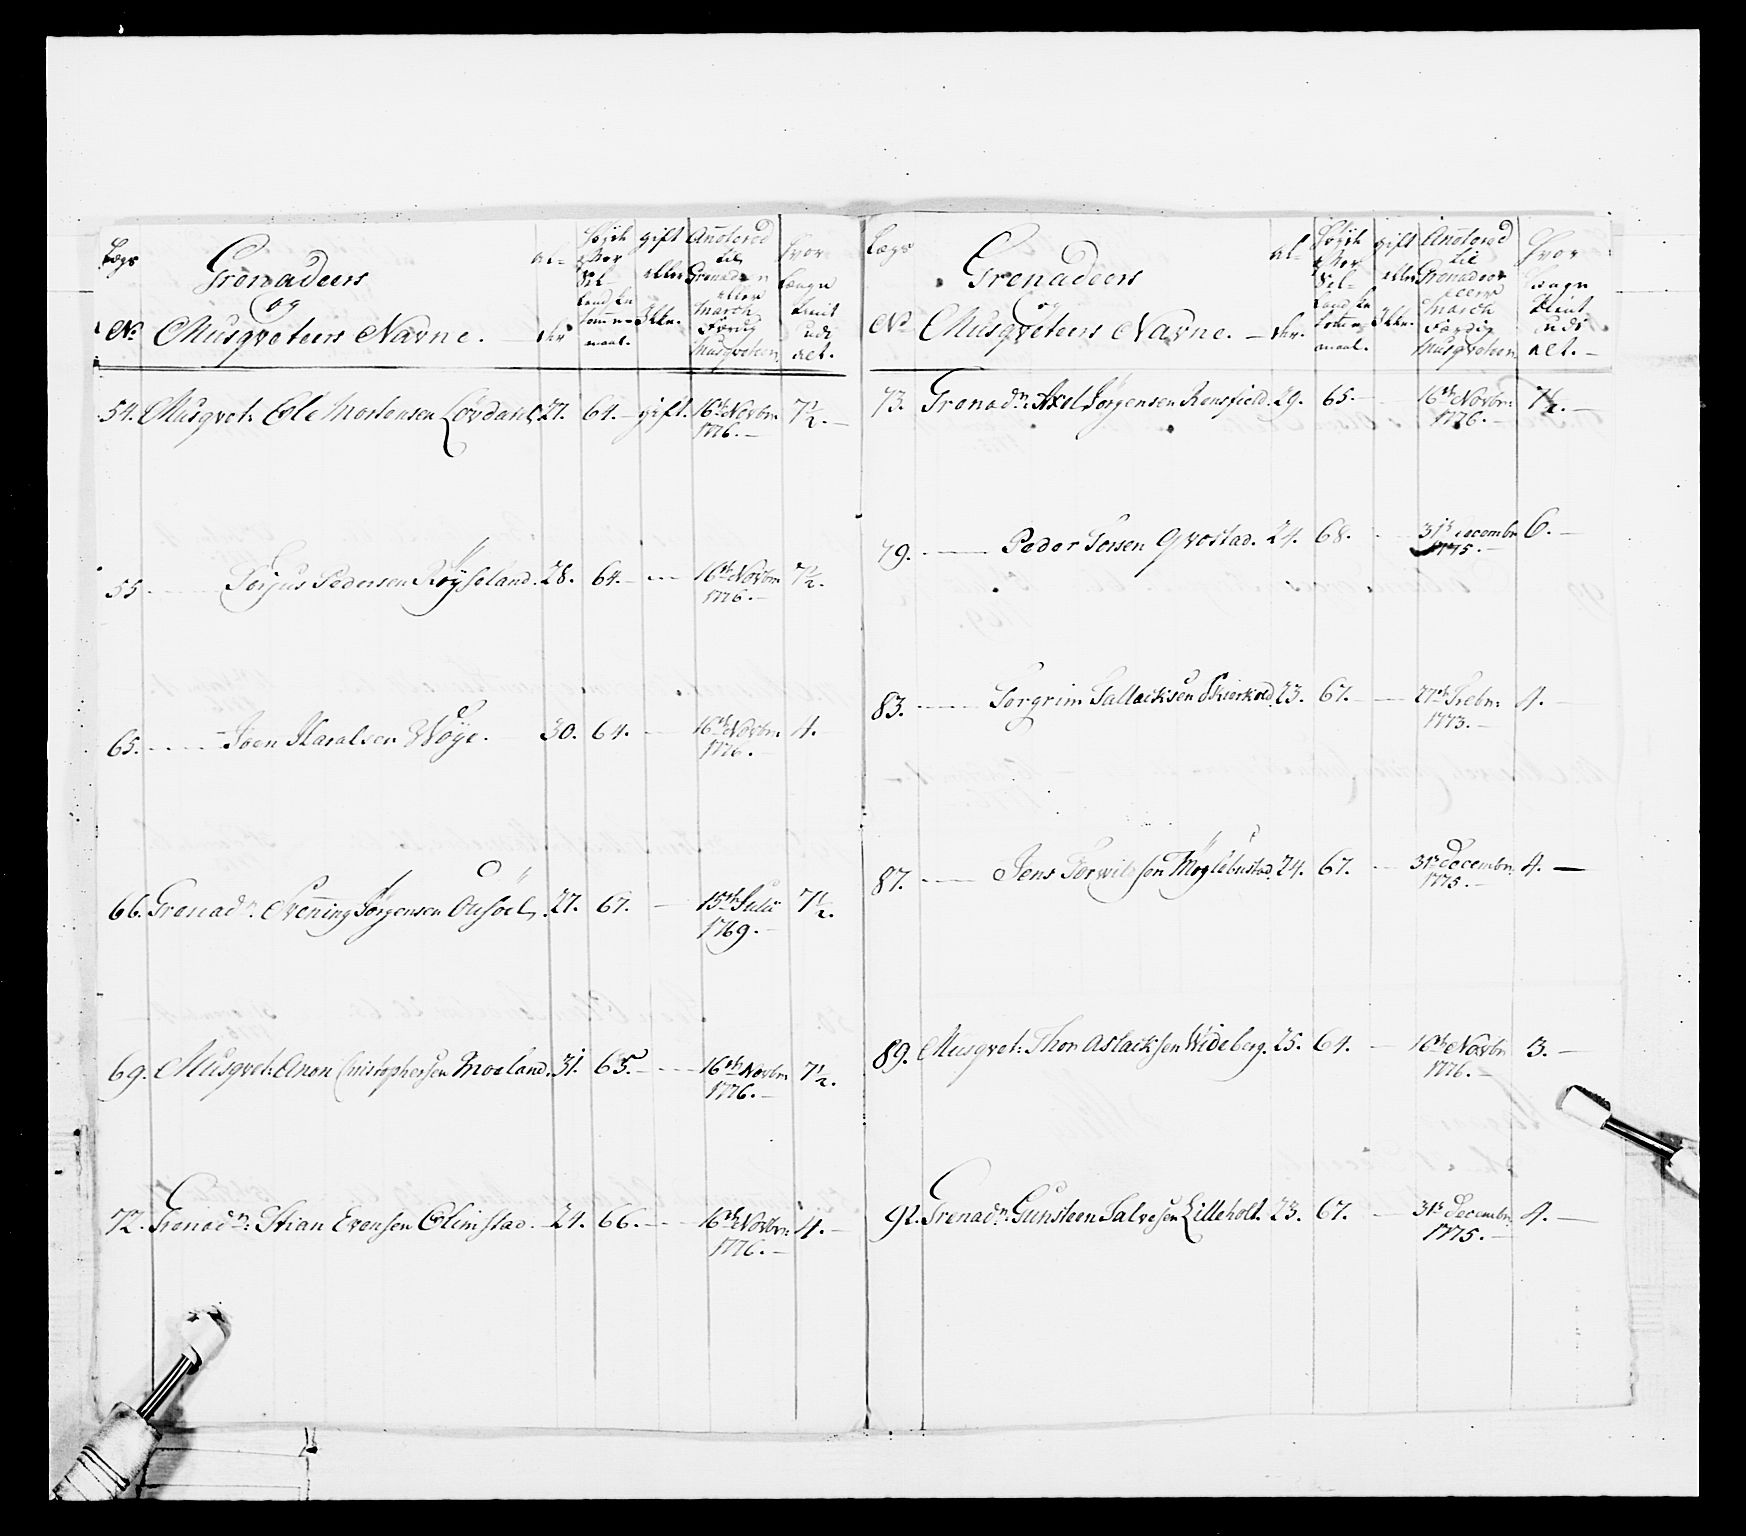 Lægs
No
Grenadeers
og
Musqveteers Navne.
al-
der
Høyde
eller
gift
eller
Ikke.
Anotered
til
Grenadeer
eller
March
Færdig
Musqveteer
Hvor
Længe
tient
udi
alt.
54. Musqvet: Ole Mortensen Løvdahl 27. 64. gift. 16de Novbr: 7½.
1776.
55. Torjus Pedersen Røyseland. 28. 64. 16de Novbr: 7½.
1776.
65. Joen Haralsen Wøye. 30. 64. 16de Novbr: 4.
1776.
66. Grenadr. Evening Jørgensen 27. 67. 15de Julii 7½.
1769.
69. Musqvet: Anon Christophersen Moeland. 31. 65. 16de Novbr: 7½.
1776.
72. Grenadr: Stian Evensen Olimstad. 24. 66. 16de Novbr: 4.
1776.
Lægs
No
Grenadeers
og
Musqveteers Navne.
al-
der.
Høyde
eller
gift
eller
Ikke.
Anotered
til
Grenadeer
eller
March
Færdig
Musqveteer
Hvor
Længe
tient
udi
alt.
73. Grenadr: Axel Jørgensen Rensfield. 29. 65. 16de Novbr: 7½.
1776.
79. Peder Tersen Qvostad. 24. 68. 31te Decembr 6.
1775.
83. Torgrim Tallacksen 23. 67. 27de Febr: 4.
1773.
87. Jens Torwildsen Møglebustad. 24. 67. 31te Decembr: 4.
1775.
89. Musqvet: Thor Aslacksen Wideberg. 25. 64. 16de Novbr 3.
1776.
92. Grenadr: Gunsteen Salvesen Lilleholt. 23. 67. 31te Decembr: 4.
1775.